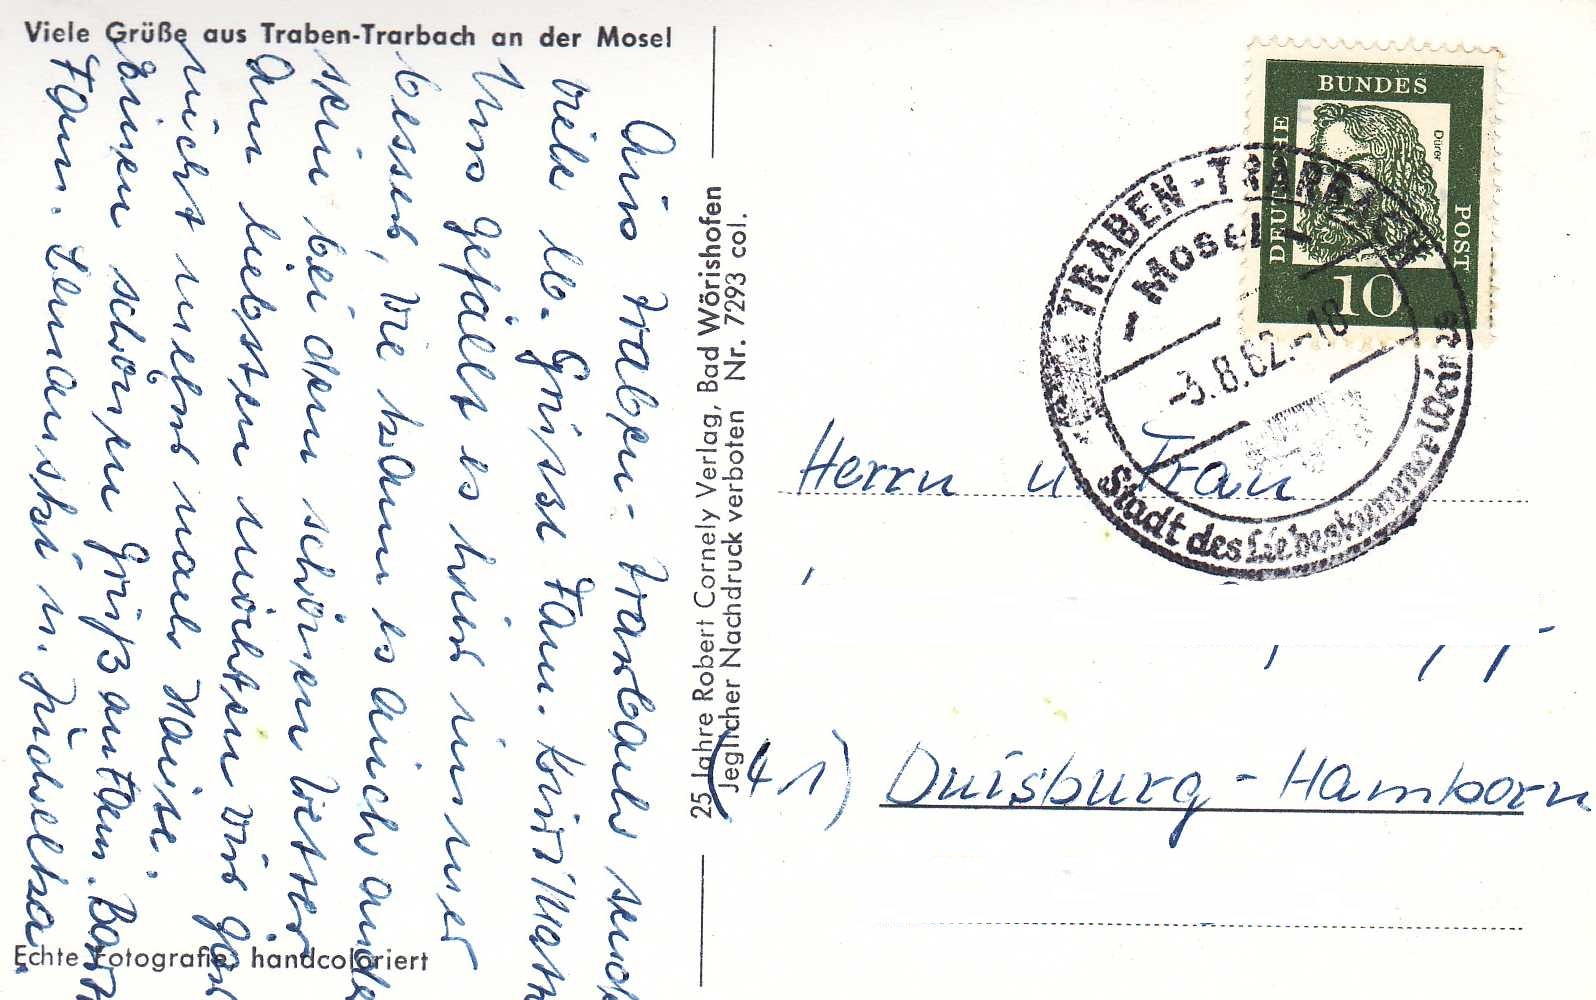 Viele Grüße aus Traben-Trarbach an der Mosel
Aus Traben-Trarbach send
viele lb. Grüsse Fam.
Uns gefällt es hier immer
besser, wie kann es auch ande
sein bei dem schönen Wetter
Am liebsten möchten wir gar
nicht mehr nach Hause.
Einen schönen Gruß an Fam.
Fam. u.
Echte Fotografie, handcoloriert
25 Jahre Robert Cornely Verlag, Bad Wörishofen
Jeglicher Nachdruck verboten Nr. 7293 col.
DEUTSCHE
BUNDES
POST
Dürer
10
TRABEN-TRARBACH
- Mosel -
-3.8.62.-18
Stadt des Liebeskummer Weines
Herrn u. Frau
(41) Duisburg-Hamborn